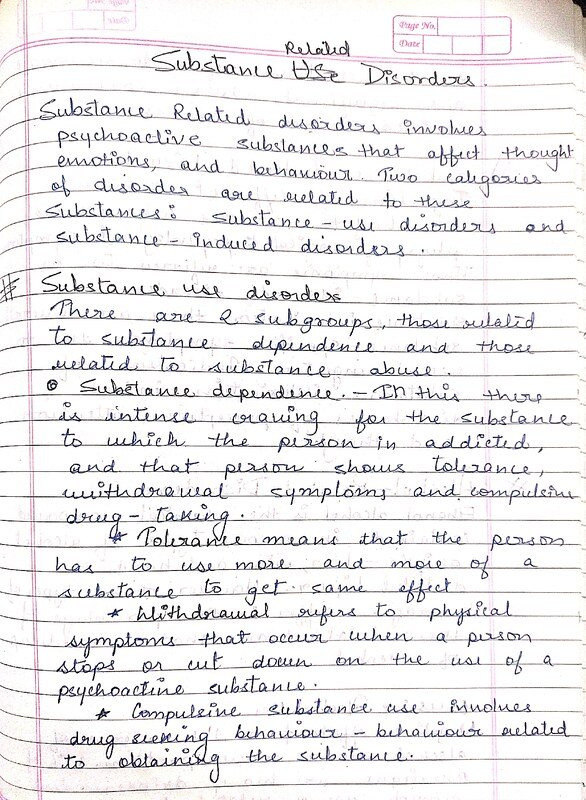 Page No.
Date
Related
Substance Use Disorders.
Substance Related disorders involves
psychoactive substances that affect thought
emotions, and behaviour Two categories
of disorder are related to these
substances: substance - use disorders and
substance - induced disorders.
# Substance use disorders
There are 2 subgroups, those related
to substance dependence and those
related to substance abuse.
Substance dependence. - In this there
is intense craving for the substance
to which the person in addicted,
and that person shows tolerance,
withdrawal symptoms and compulsive
drug - taking.
* Tolerance means that the person
has to use more and more of a
substance to get same effect
* Withdrawal refers to physical
symptoms that occur when a person
stops or cut down on the use of a
psychoactive substance.
* Compulsive substance use involves
drug seeking behaviour - behaviour related
to obtaining the substance.